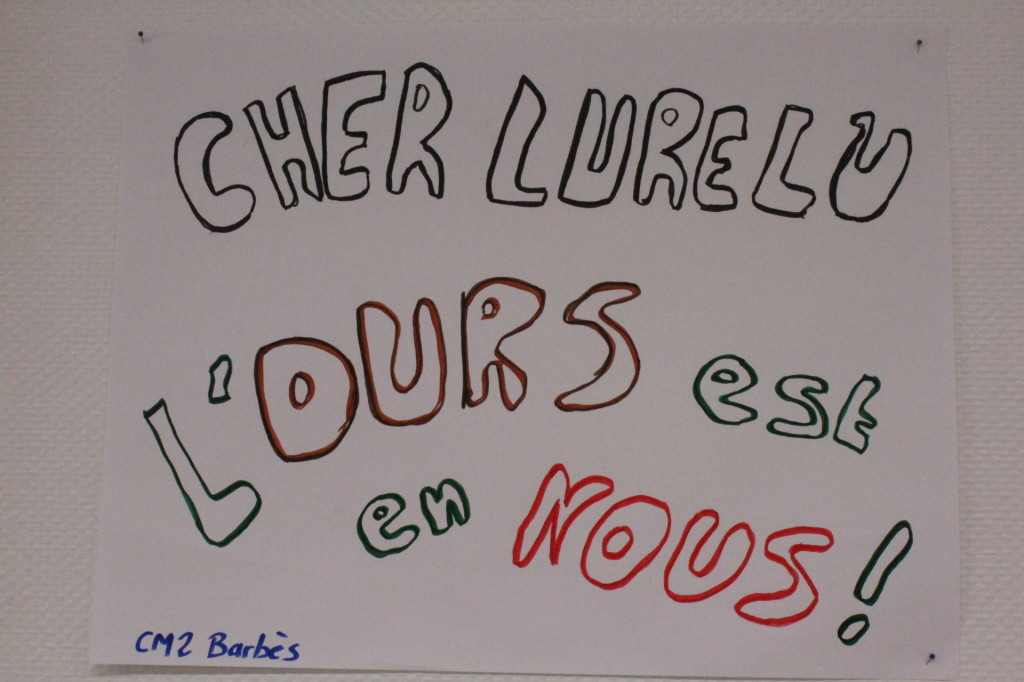 CHER LURELU
L'OURS est
en NOUS!
CM2 Barbès